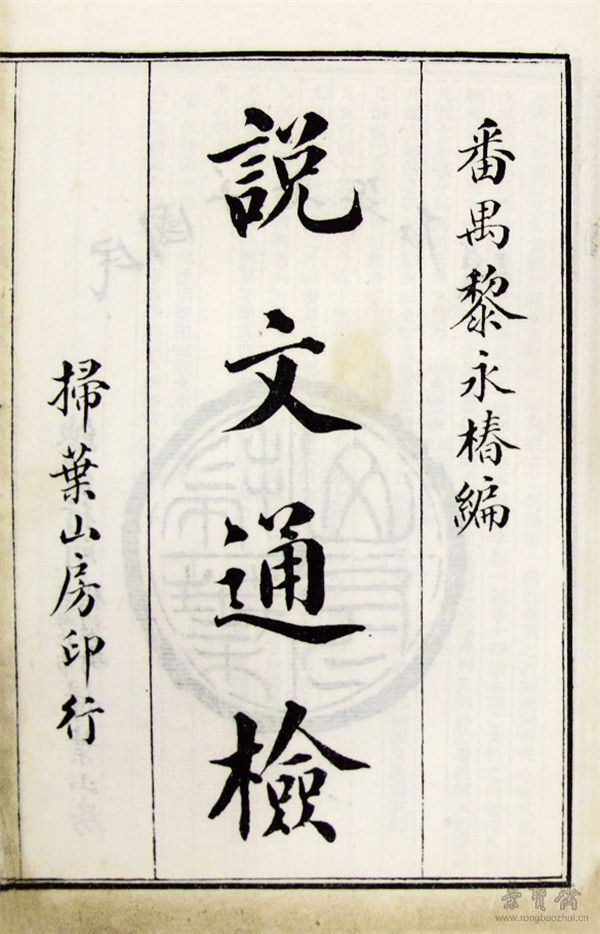 番禺黎永椿編
說文通檢
掃葉山房印行
榮寶齋
www.rongbaozhai.cn